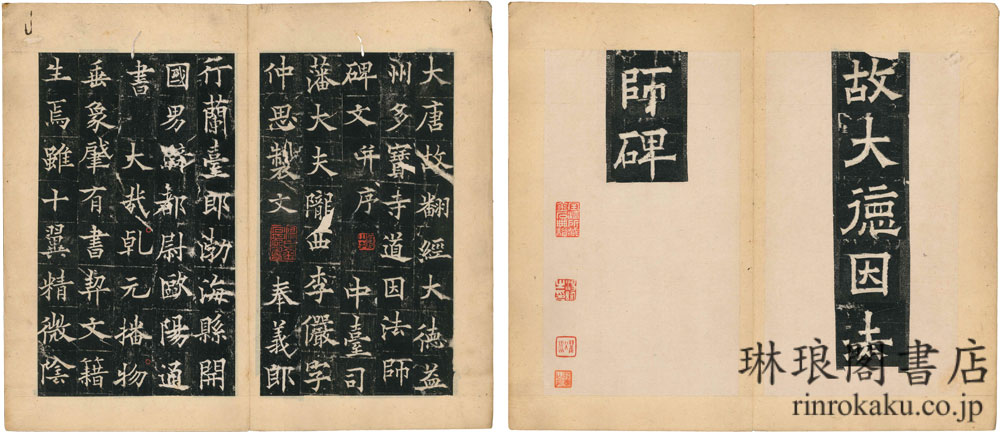 故大德因法
師碑
大唐故翻經大德益
州多寶寺道因法師
碑文并序 中臺司
藩大夫隴西李儼字
仲思製文 奉義郎
行蘭臺郎渤海縣開
國男騎都尉歐陽通
書 大哉乹元播物
垂象肇有書契文籍
生焉雖十翼精微陰
琳琅閣書店
rinrokaku.co.jp